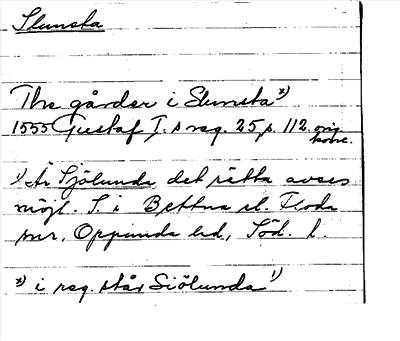 Slunsta
Thre gårdar i Slunsta x)
1555 Gustaf I. s reg. 25 s. 112. orig
konc.
1) Är Sjölunda det rätta avses
möjl. S. i Bettna el. Floda
snr, Oppunda hd, Söd. l.
x) i reg. står Siölunda 1)